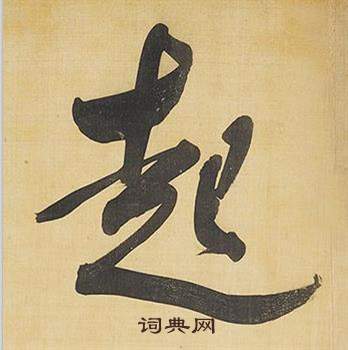 起
词典网